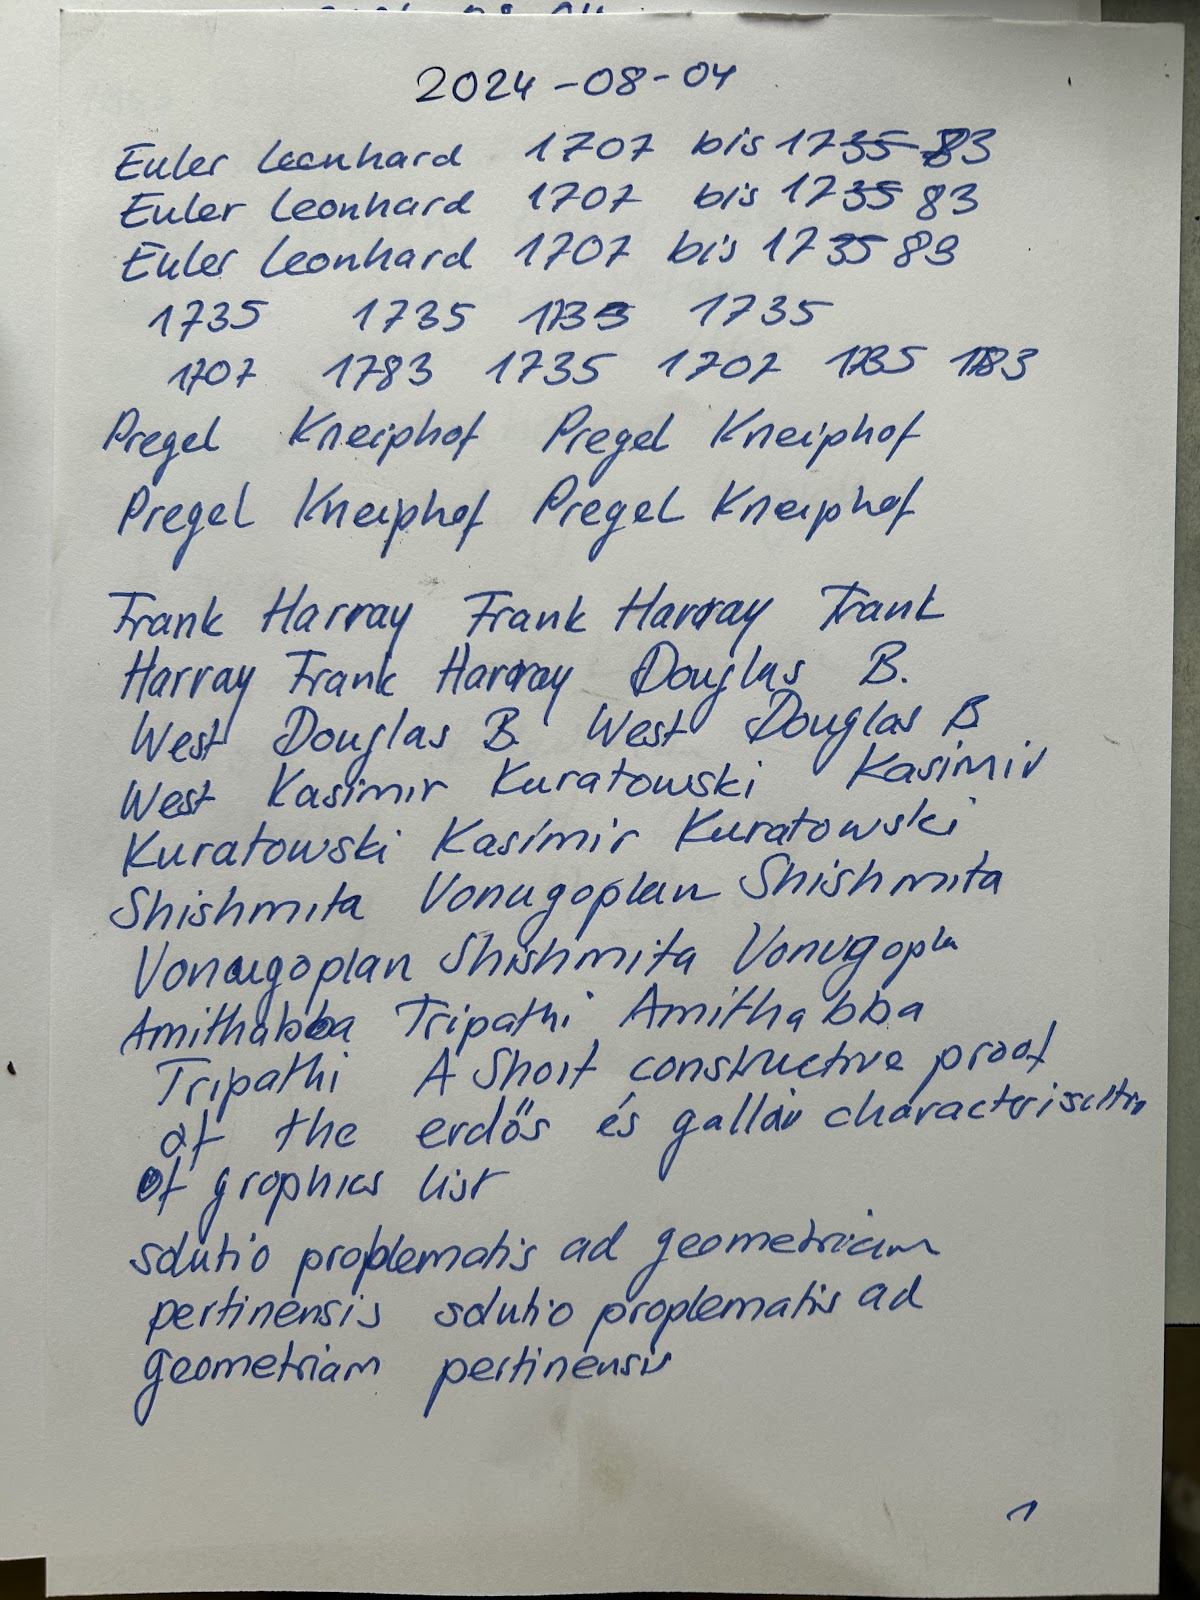 2024-08-04
Euler Leonhard 1707 bis 1735 83
Euler Leonhard 1707 bis 1735 83
Euler Leonhard 1707 bis 1735 83
1735 1735 1735 1735
1707 1783 1735 1707 1735 1783
Pregel Kneiphof Pregel Kneiphof
Pregel Kneiphof Pregel Kneiphof
Frank Harray Frank Harray Frank
Harray Frank Harray Douglas B.
West Douglas B. West Douglas B
West Kasimir Kuratowski Kasimir
Kuratowski Kasimir Kuratowski
Shishmita Vonugoplan Shishmita
Vonugoplan Shishmita Vonugopla
Amithabba Tripathi Amithabba
Tripathi A Short constructive proof
of the erdős és gallai
of graphics list
solutio problematis ad geometriam
pertinensis solutio proplematis ad
geometriam pertinensis
1